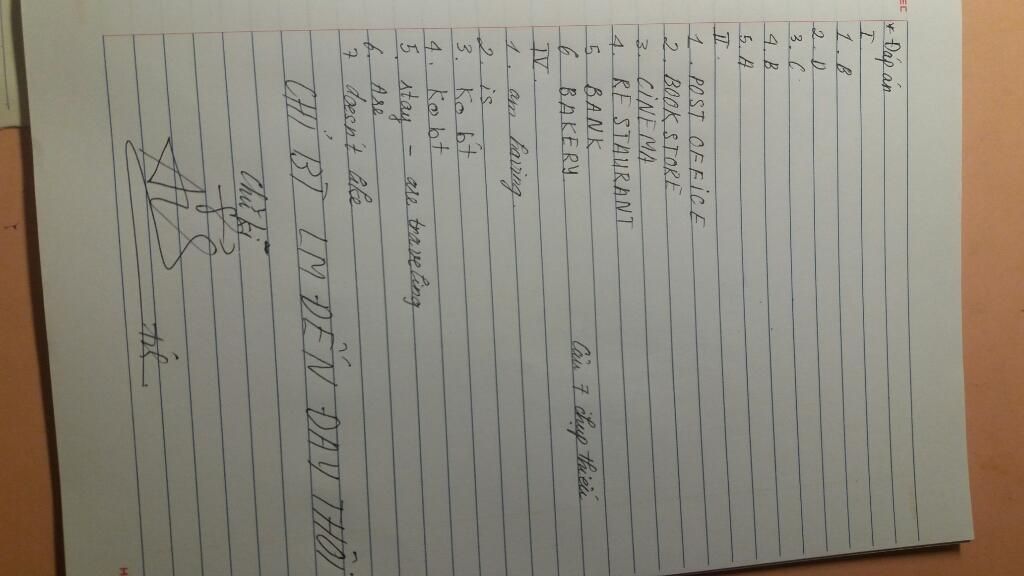 * Đáp án
I.
1. B
2. D
3. C
4. B
5. A
II.
1. POST OFFiCE
2. BOOKSTORE
3. CINEMA
4. RESTAURANT
5. BANK
6. BAKERY
Câu 7 chụp thiếu
IV.
1. am having
2. is
3. Ko bt
4. Ko bt
5. stay - are traveling
6. Are
7 doesn't like
CHỈ BT LM ĐẾN ĐAY THÔI
Chữ kí